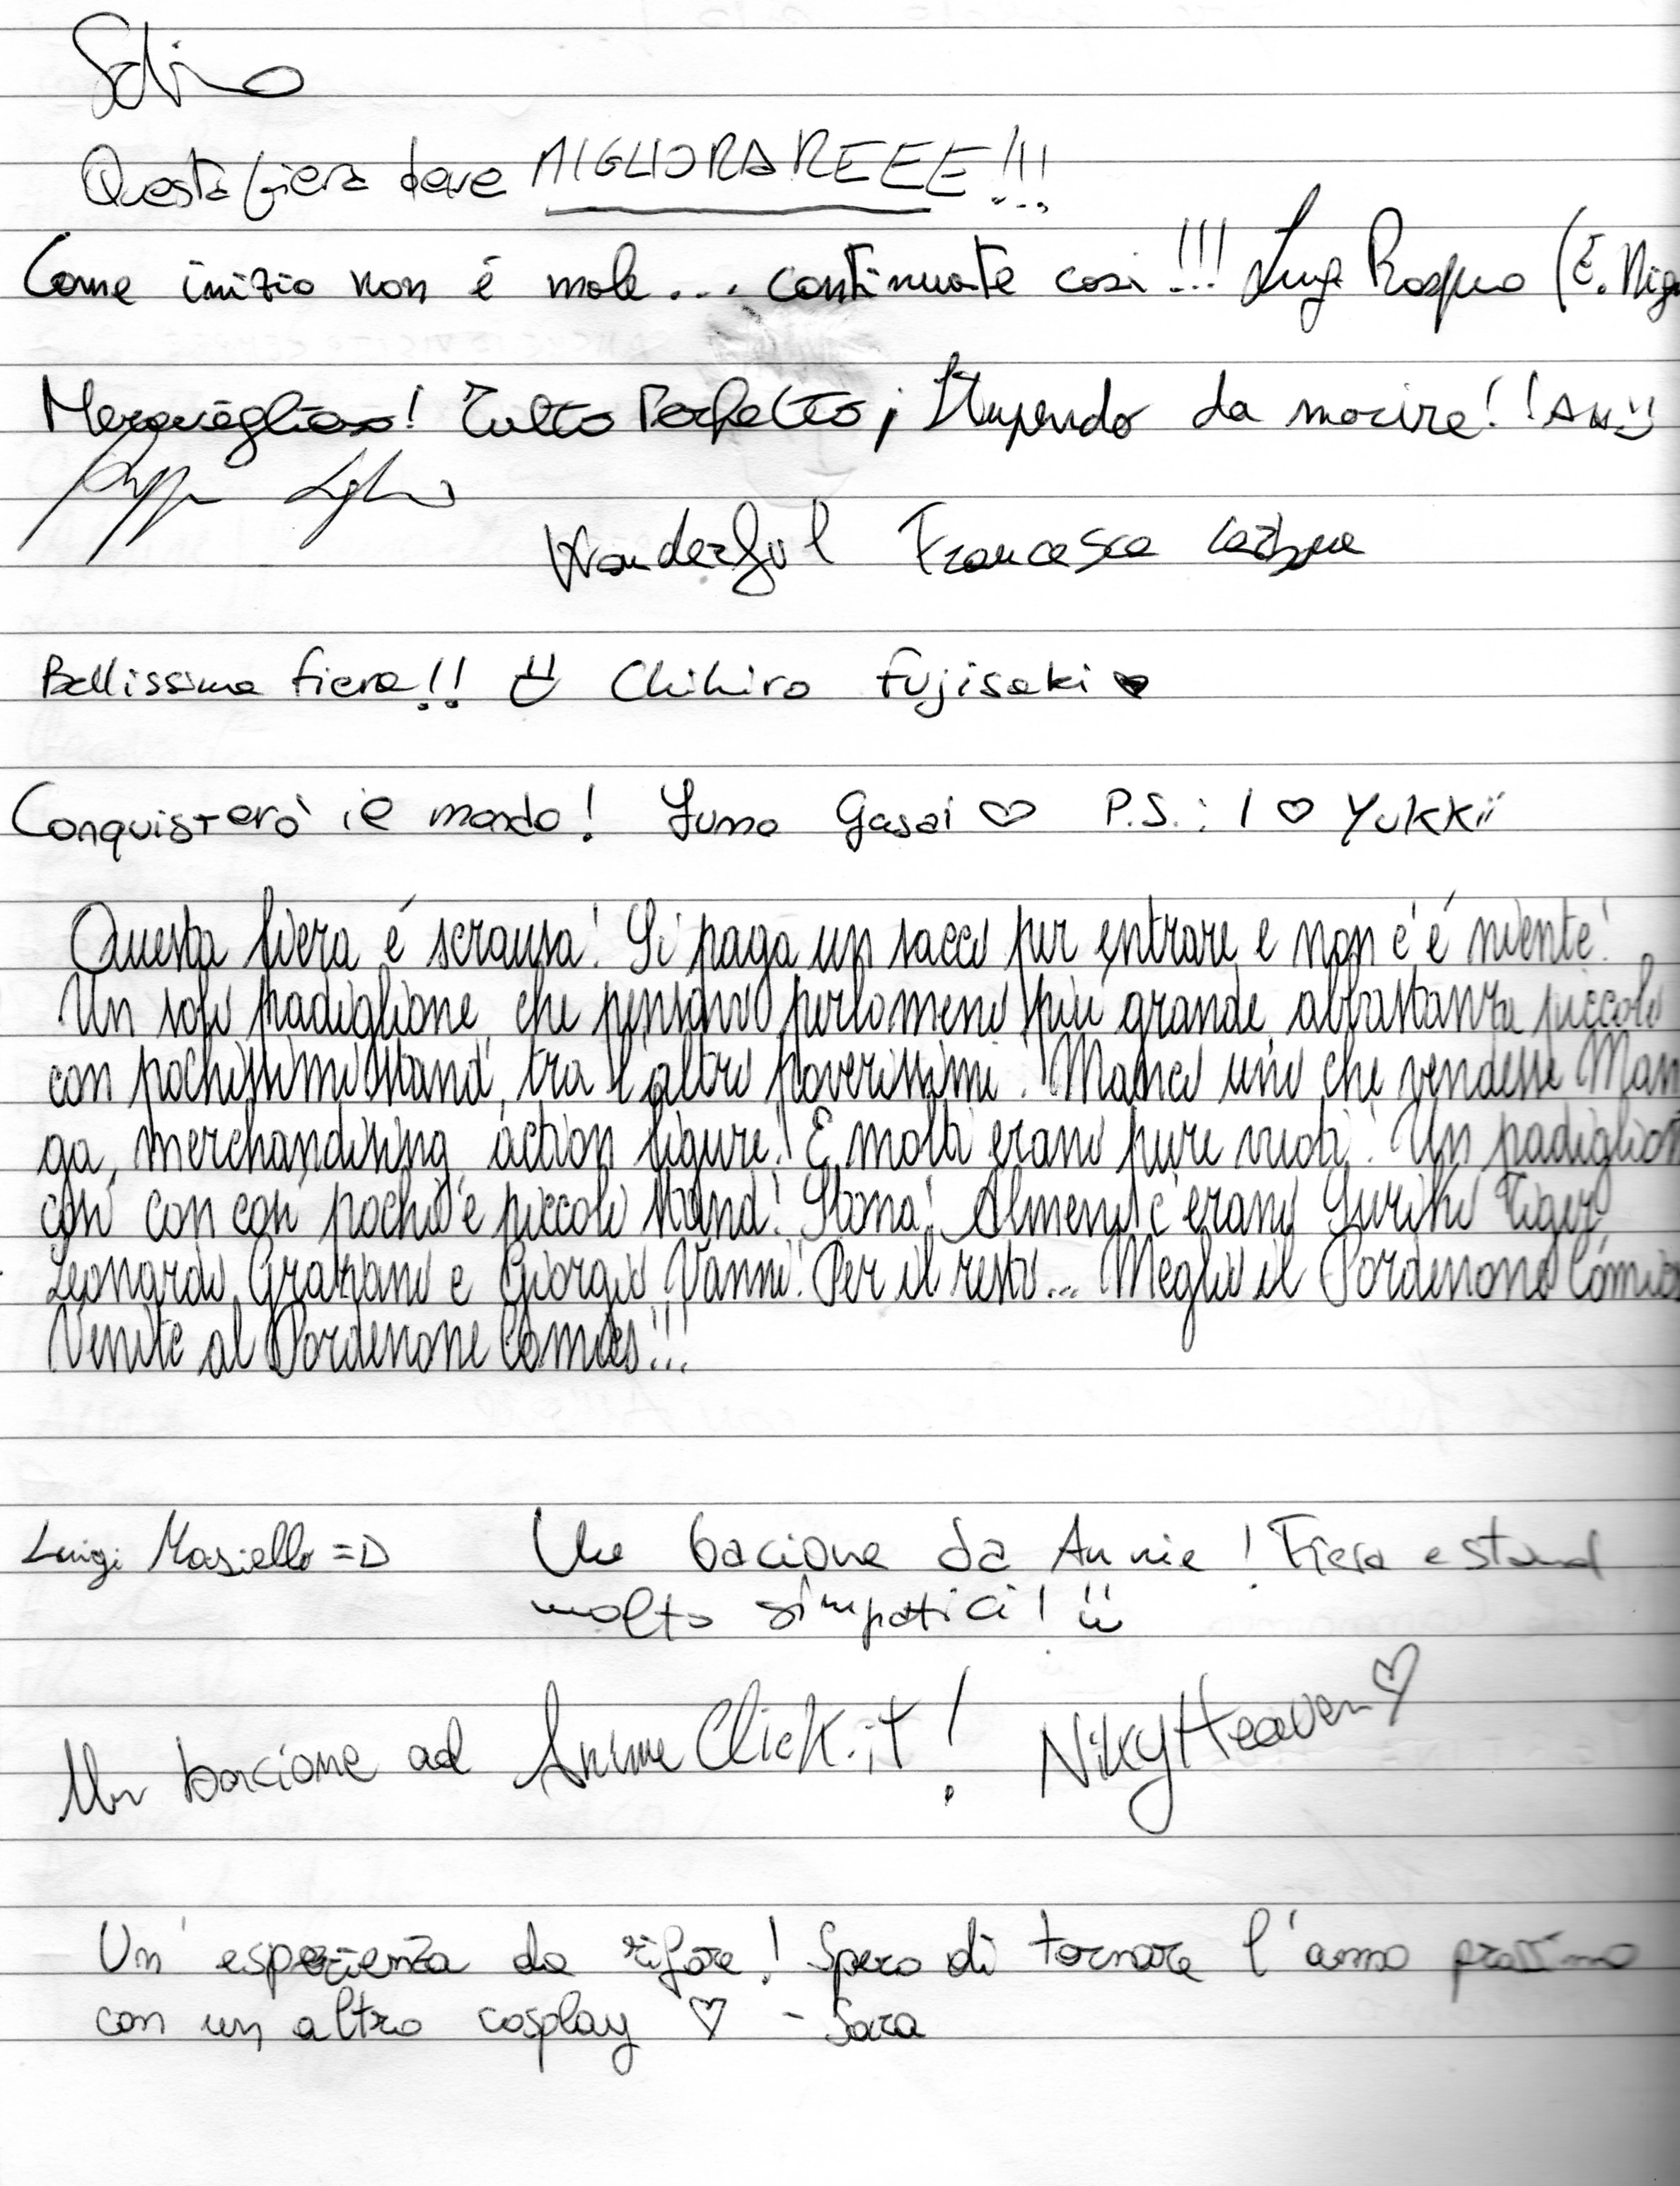 Questa fiera deve MIGLIORAREEE!!!
Come inizio non é male... continuate così!!! Luigi (E. Nig
Meraviglioso! Tutto Perfetto, Stupendo da morire!!
Wonderful Francesca
Bellissima fiera!! Chihiro Fujisaki ♥
Conquisterò il mondo! Yuno Gasai ♡ P.S.: I ♡ Yukkii
Questa fiera é scrausa! Si paga un sacco per entrare e non c'é niente!
Un solo padiglione, che pensavo perlomeno più grande, abbastanza piccolo
con pochissimi stand, tra l'altro poverissimi! Manco uno che vendesse Man
ga, merchandising, action figure! E molti erano pure vuoti! Un padiglion
così con così pochi e piccoli stand! Almeno c'erano Yuriko Tiger,
Leonardo Graziano e Giorgio Vanni! Per il resto... Meglio il Pordenone Comics
Venite al Pordenone Comics!!!
Luigi Masiello =D
Un bacione da Annie! Fiera e stand
molto simpatici! :)
Un bacione ad AnimeClick.it! NikyHeaven ♡
Un'esperienza da rifare! Spero di tornare l'anno prossimo
con un altro cosplay ♡ - Sara